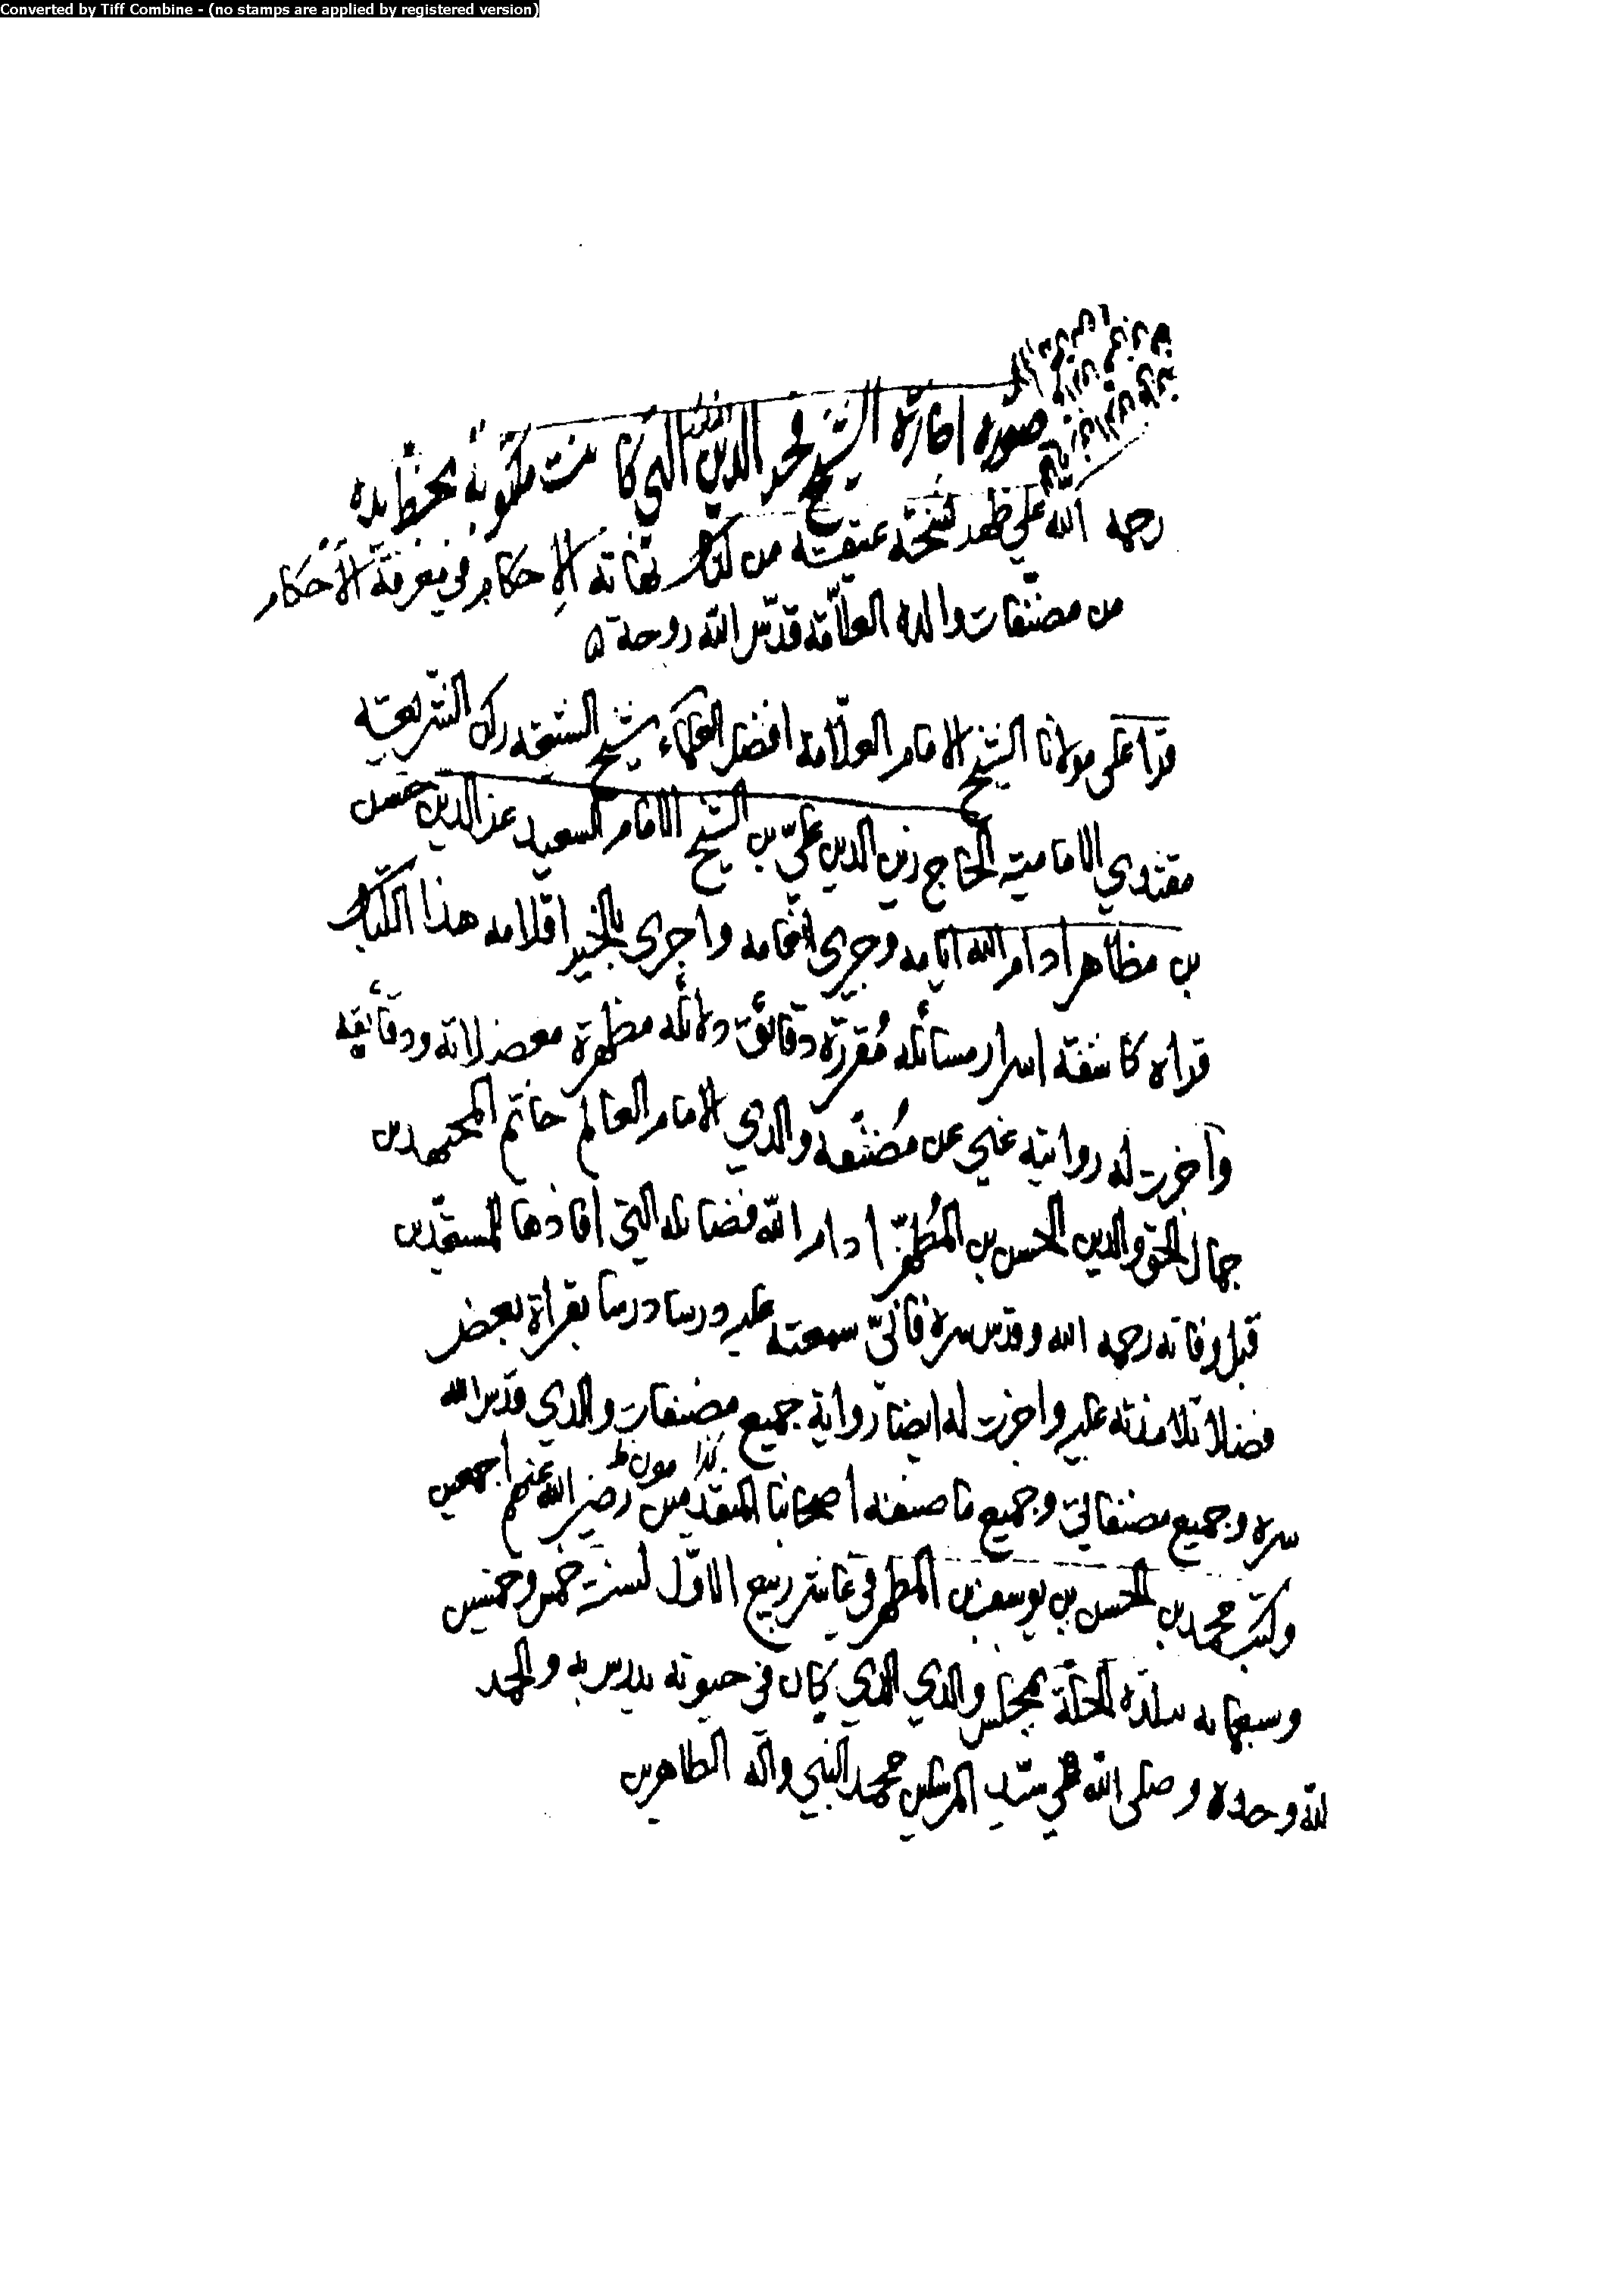 Converted by Tiff Combine - (no stamps are applied by registered version)
صورة اجازة الشيخ فخر الدين التي كانت مكتوبة بخط يده
رحمه الله على ظهر نسخة عتيقة من كتاب نهاية الاحكام في معرفة الاحكام
من مصنفات والده العلّامة قدّس الله روحه
قرا على مولانا الشيخ الامام العلّامة افضل العلماء شيخ الشيعة ركن الشريعة
مقتدي الامامية الحاج زين الدين عليّ بن الشيخ الامام السعيد عز الدين حسن
بن مظاهر ادام الله ايامه واجرى بالخير اقلامه هذا الكتاب
قراه كاشفة اسرار مسائله مُقررة دقائق دلائله مظهرة معضلاته ودقائقه
واجزت له روايته عني عن مُصنّفه والدي الامام العالم خاتم المجتهدين
جمال الحق والدين الحسن بن المُطهّر ادام الله فضائله التي افادها للمستعدين
قبل وفاته رحمه الله وقدس سره فانيّ سمعته عليه درسا درسا بقراة بعض
فضلا تلامذته عليه واجزت له ايضا رواية جميع مصنفات والدي قدس الله
كذا
سره وجميع مصنفاتي وجميع ما صنفه اصحابنا المتقدمين رضي الله عنهم اجمعين
وكتب محمد بن الحسن بن يوسف بن المطهر في عاشر ربيع الاوّل لسنة خمس وخمسين
وسبعمايه ببلدة الحلّة بمجلس والدي الذي كان في حيوته يدرس به والحمد
لله وحده وصلى الله على سيّد المرسلين محمد النبي وآله الطاهرين